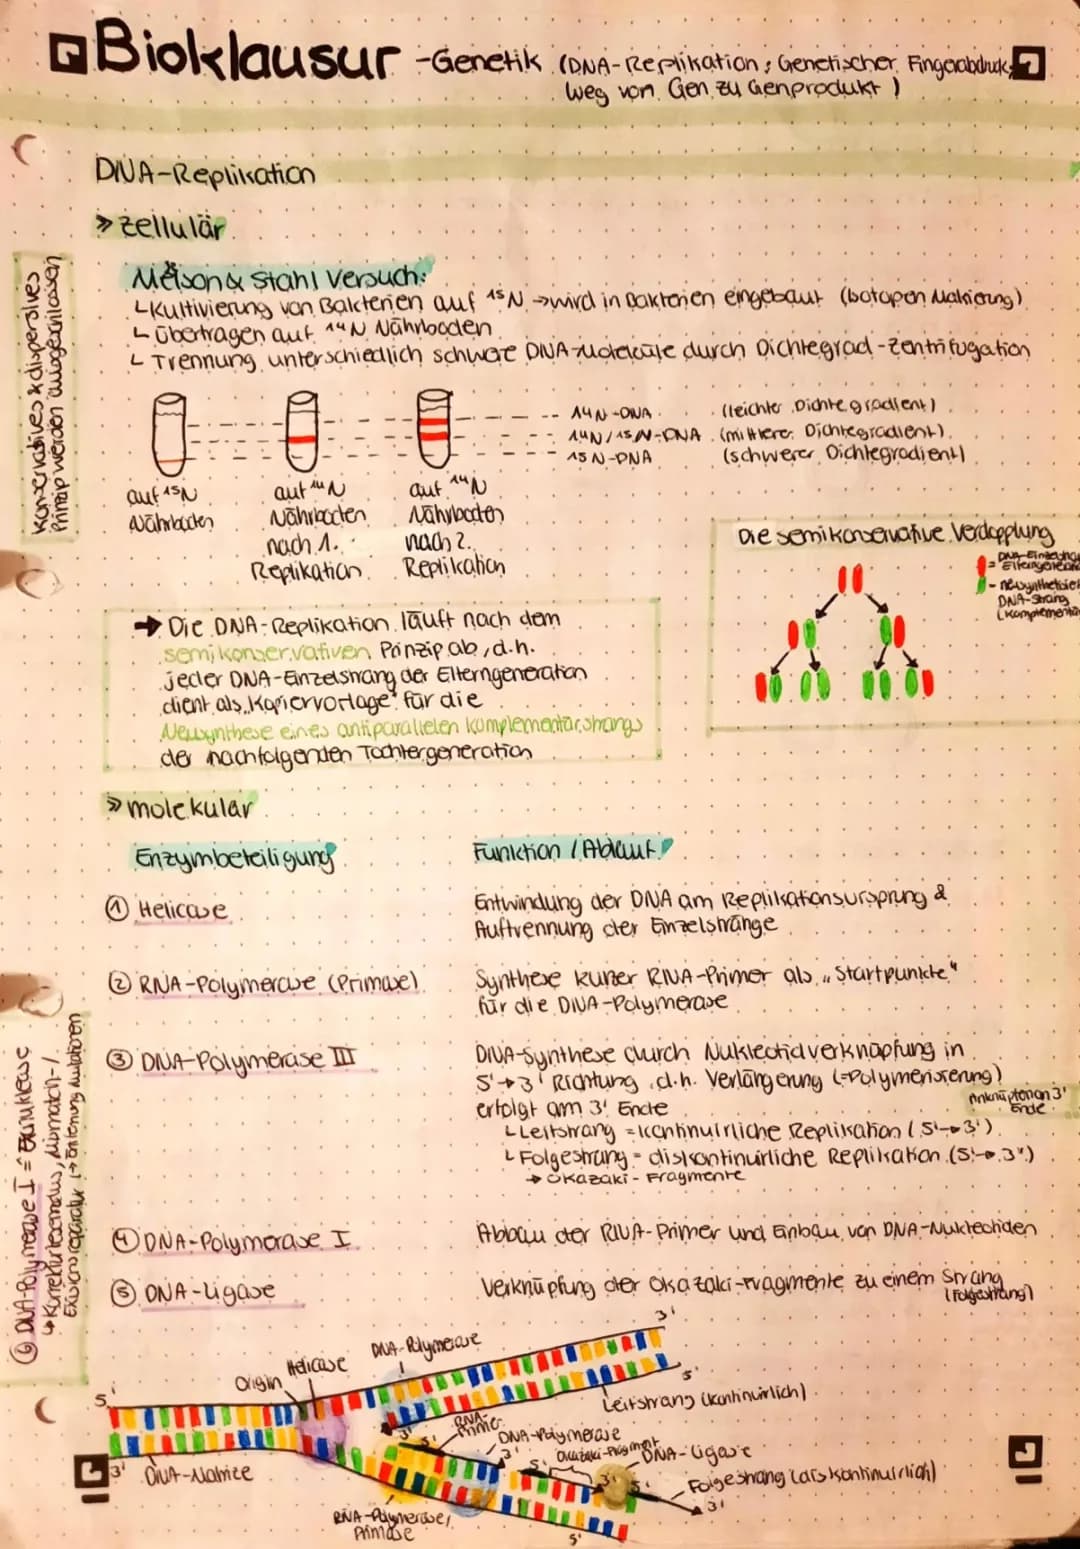 Bioklausur -Genetik (DNA-Replikation; Genetischer Fingerabdruck,
Weg von Gen zu Genprodukt)
DNA-Replikation
» zellulär
Konservatives & dispersives
Prinzip werden ausgeschlossen
Meson & Stahl Versuch:
↳ Kultivierung von Bakterien auf ¹⁵N → wird in Bakterien eingebaut (Isotopen Makierung)
↳ Übertragen auf ¹⁴N Nährboden
↳ Trennung unterschiedlich schwere DNA-Moleküle durch Dichtegrad-Zentrifugation
14N-DNA (leichter Dichtegradient)
14N/15N-DNA (mittlerer Dichtegradient)
15N-DNA (schwerer Dichtegradient)
auf ¹⁵N
Nährboden
auf ¹⁴N
Nährboden
nach 1.
Replikation
auf ¹⁴N
Nährboden
nach 2.
Replikation
Die semikonservative Verdopplung
= DNA-Einzelstrang
Elterngeneration
= neusynthetisierter
DNA-Strang
(komplementär
→ Die DNA-Replikation läuft nach dem
semikonservativen Prinzip ab, d.h.
jeder DNA-Einzelstrang der Elterngeneration
dient als „Kopiervorlage" für die
Neusynthese eines antiparallelen Komplementärstrangs
der nachfolgenden Tochtergeneration
» molekular
Enzymbeteiligung
Funktion / Ablauf
① Helicase
Entwindung der DNA am Replikationsursprung &
Auftrennung der Einzelstränge
② RNA-Polymerase (Primase)
Synthese kurzer RNA-Primer als „Startpunkte"
für die DNA-Polymerase
③ DNA-Polymerase III
DNA-Synthese durch Nukleotidverknüpfung in
5'→3' Richtung, d.h. Verlängerung (=Polymerisierung)
erfolgt am 3' Ende
Anknüpfen an 3'
Ende
↳ Leitstrang = kontinuirliche Replikation (5'→3')
↳ Folgestrang = diskontinuirliche Replikation (5'→3')
→ Okazaki-Fragmente
④ DNA-Polymerase I
Abbau der RNA-Primer und Einbau von DNA-Nukleotiden
⑤ DNA-Ligase
Verknüpfung der Okazaki-Fragmente zu einem Strang
(Folgestrang)
⑥ DNA-Polymerase I = Exonuklease
↳ Korrekturlesemodus, Mismatch-/
Exzisionsreparatur (→ Entfernung Mutationen
5'
3'
Origin
Helicase
DNA-Polymerase
3'
5'
Leitstrang (kontinuirlich)
3'
5'
RNA-
Primer
DNA-Polymerase
3'
5'
Okazaki-Fragment
DNA-Ligase
3'
5'
Folgestrang (diskontinuirlich)
3'
5'
DNA-Matrize
RNA-Polymerase/
Primase